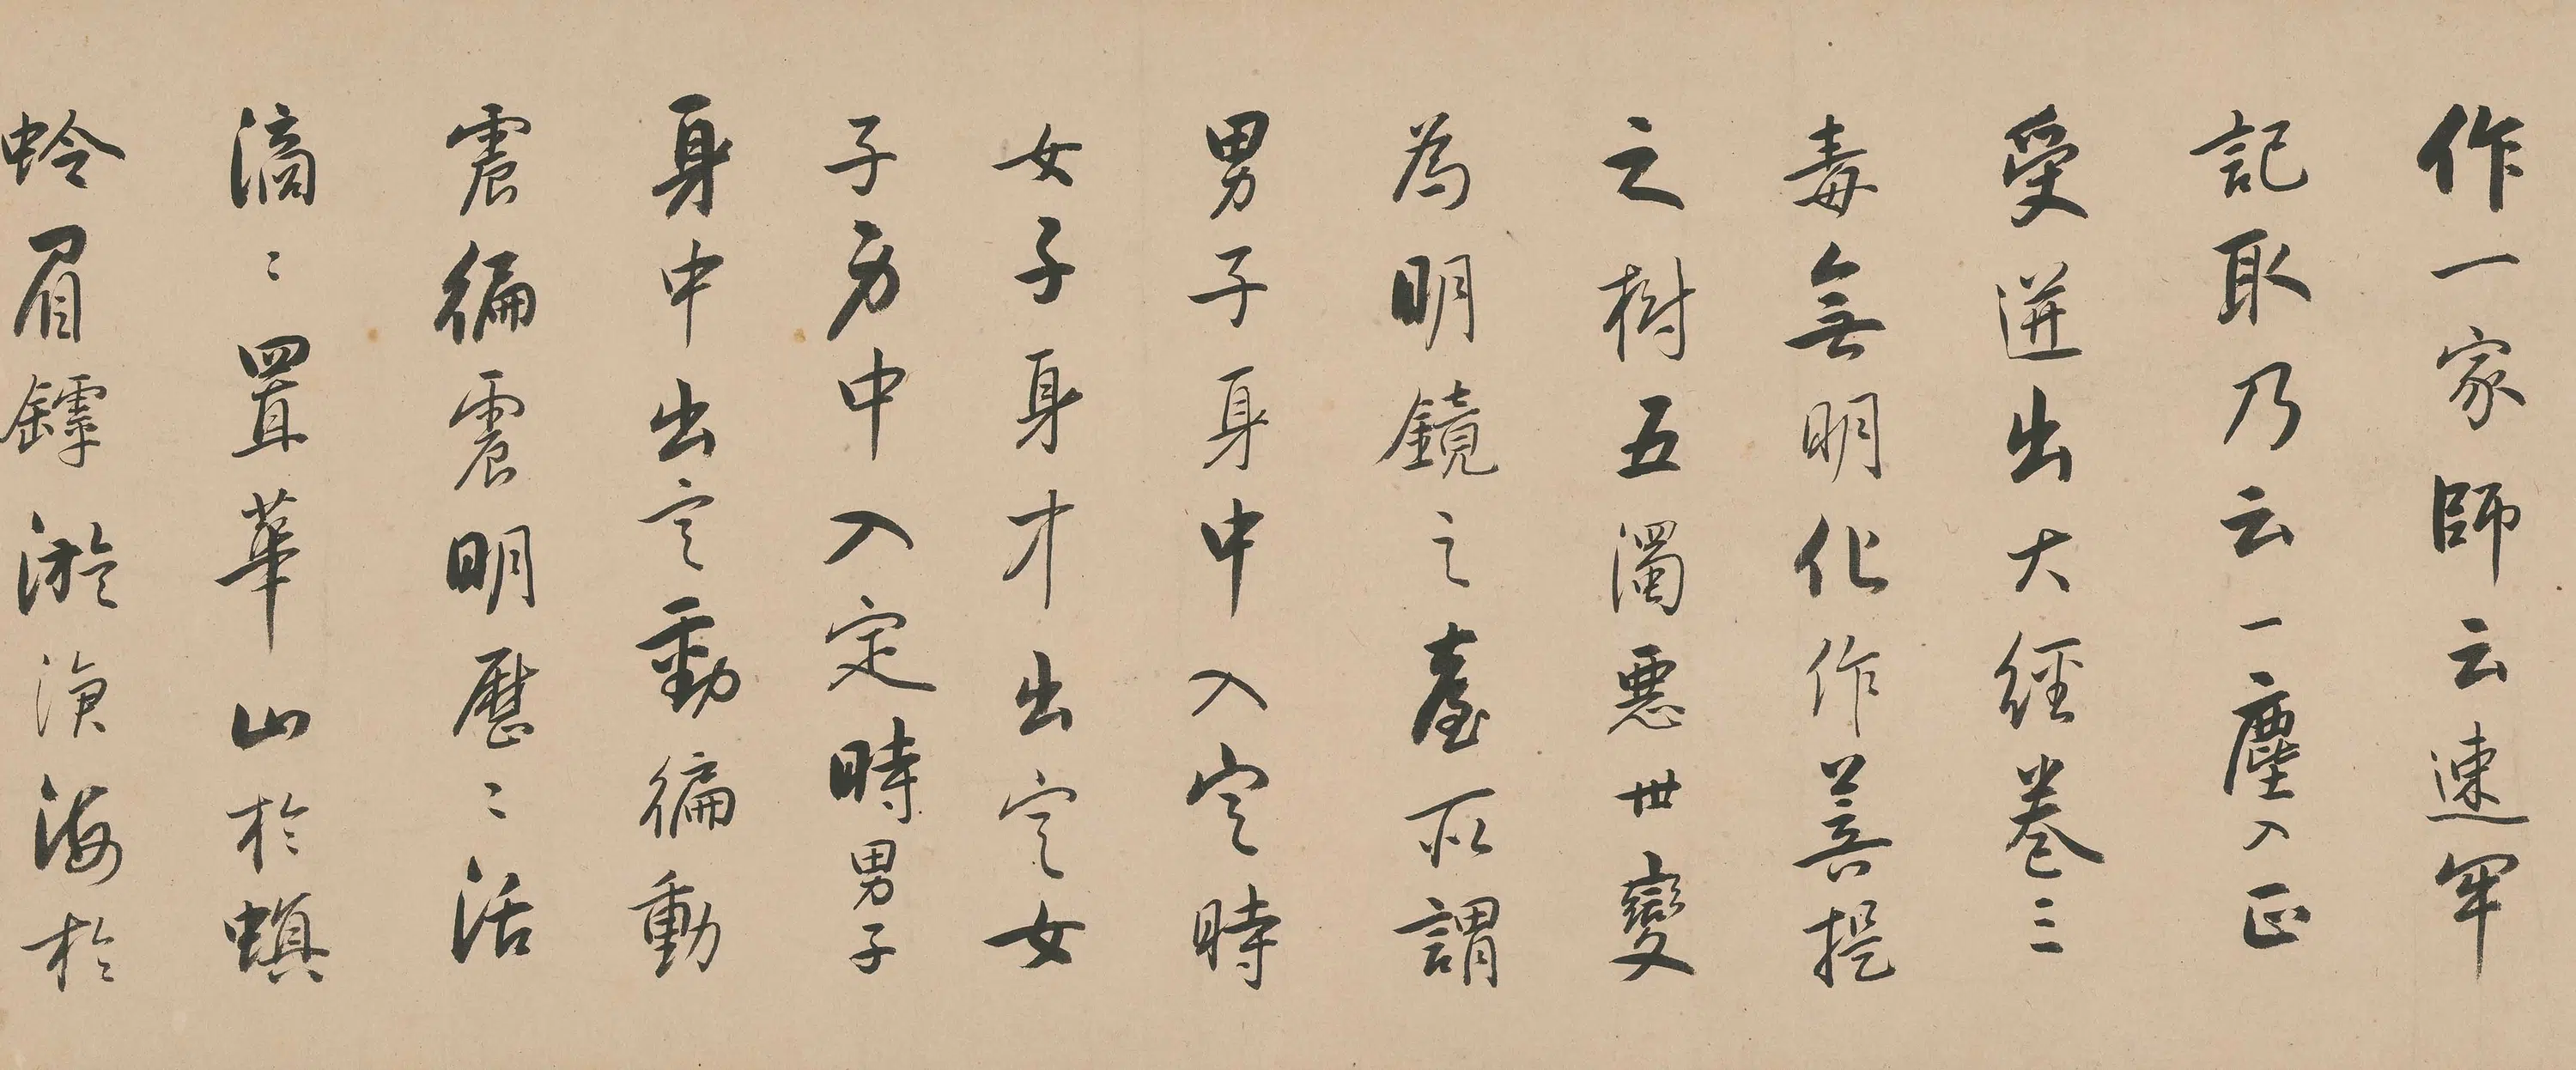 作一家師云速牢
記取乃云一塵入正
受迸出大經卷三
毒無明化作菩提
之樹五濁惡世變
為明鏡之臺所謂
男子身中入定時
女子身才出定女
子身中入定時男子
身中出定動徧動
震徧震明歷〻活
滴〻置華山於螟
蛉眉罅漩澓海於